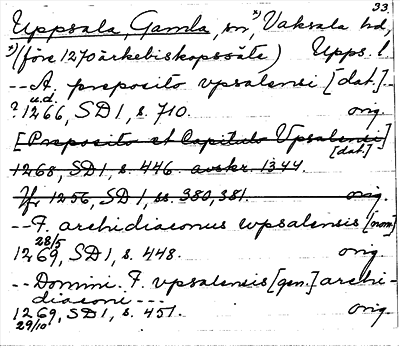 33.
Uppsala, Gamla, sn, *) Vaksala hd,
*) (före 1270 ärkebiskopssäte) Upps. l
-- A. preposito vpsalensi [dat.] --
u.d.
? 1266, SD 1, s. 710. orig.
[Preposito et Capitulo Vpsalensi]
[dat.]
1268, SD 1, s. 446. avskr. 1344.
Jfr 1256, SD 1, ss. 380, 381. orig.
-- F. archidiaconus wpsalensis [nom]
28/5
1269, SD 1, s. 448. orig.
-- Domini. F. vpsalensis [gen.] archi-
diaconi ---
1269, SD 1, s. 451. orig.
29/10